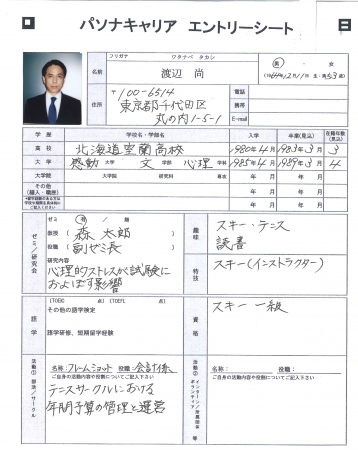 パソナキャリア エントリーシート
フリガナ ワタナベ タカシ
名前 渡辺 尚
男 ・ 女
住所 〒100-6514
東京都千代田区
丸の内1-5-1
電話
携帯
E-mail
学 歴 学校名・学部名 入学 卒業(見込) 在籍年数
高 校 北海道室蘭高校 1980年4月 1983年3月 3
大 学 感動 大学 文 学部 心理 学科 1985年4月 1989年3月 4
大学院 大学院 研究科 専攻 年 月 年 月
その他
(編入・職歴) 年 月 年 月
年 月 年 月
ゼミ/研究会
ゼミ 有 / 無
教授 ( 森 太郎 )
役職 ( 副ゼミ長 )
研究内容
心理的ストレスが試験に
およぼす影響
趣味
スキー・テニス
読書
特技
スキー(インストラクター)
語 学
(TOEIC 点) (TOEFL 点)
その他の語学検定
語学研修、短期留学経験
資 格
スキー 一級
活動① 部活/サークル
名称:フレームショット 役職:会計係
ご自身の活動内容や役割についてご記入下さい
テニスサークルにおける
年間予算の管理と運営
活動②
名称: 役職:
ご自身の活動内容や役割についてご記入下さい